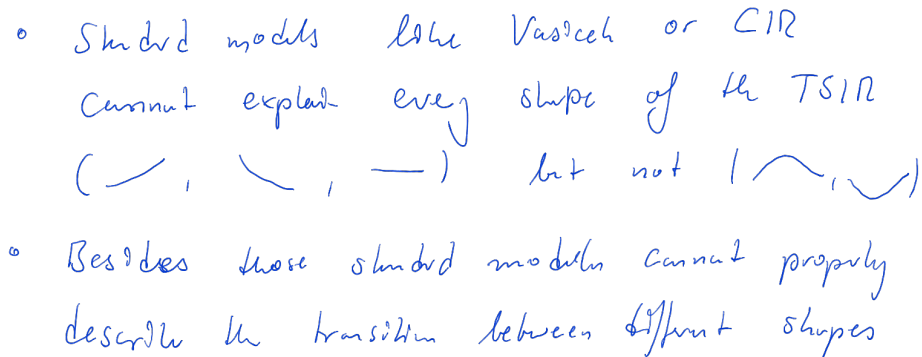 • Standard models like Vasicek or CIR
cannot explain every shape of the TSIR
( , , ) but not ( , )
• Besides those standard models cannot properly
describe the transition between different shapes